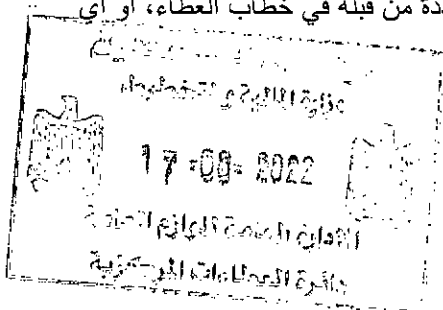 دة من قبله في خطاب العطاء، أو أي
وزارة المالية والتخطيط
17 -08- 2022
الإدارة العامة للوازم العامة
دائرة العطاءات المركزية